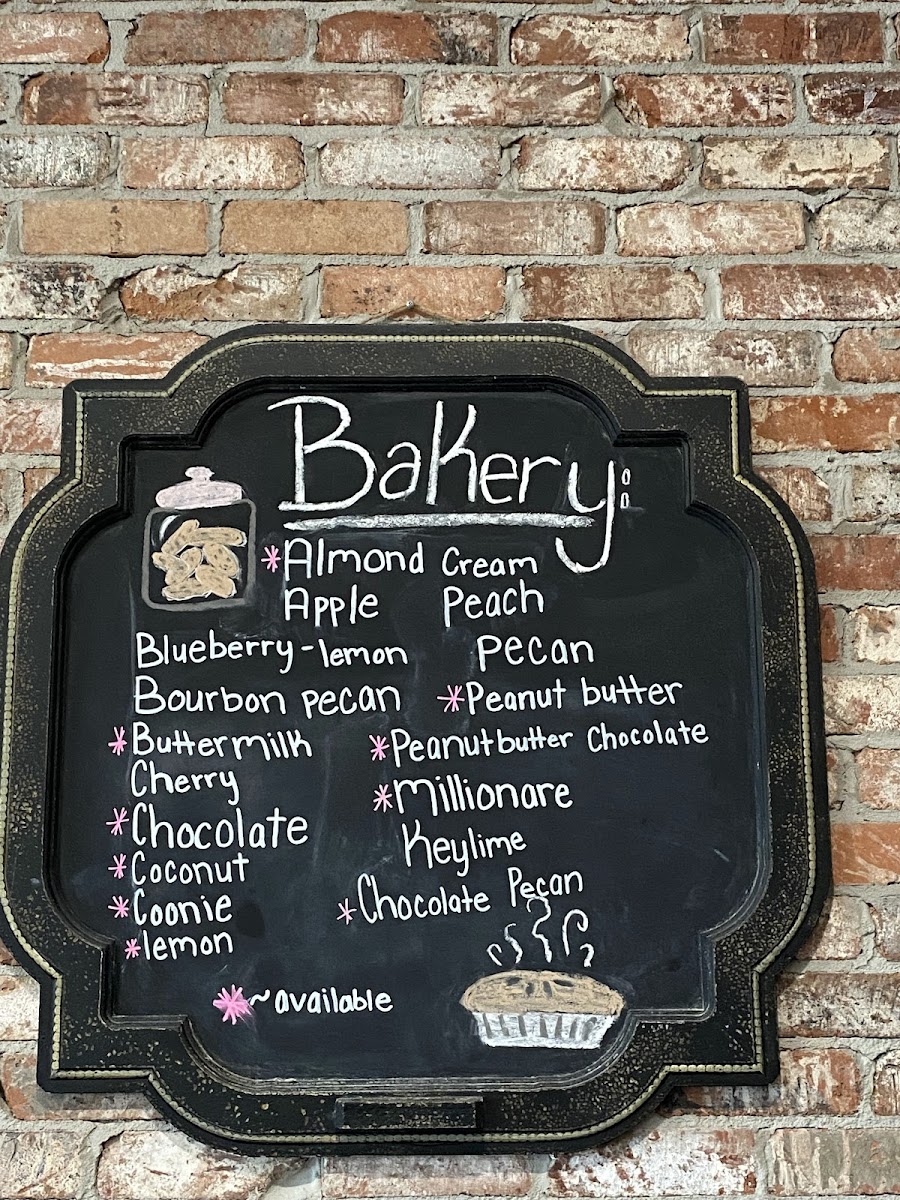 Bakery:
*Almond Cream
Apple
Blueberry-lemon
Bourbon pecan
*Buttermilk
Cherry
*Chocolate
*Coconut
*Coonie
*lemon
Peach
Pecan
*Peanut butter
*Peanutbutter Chocolate
*Millionare
Keylime
*Chocolate Pecan
*~available